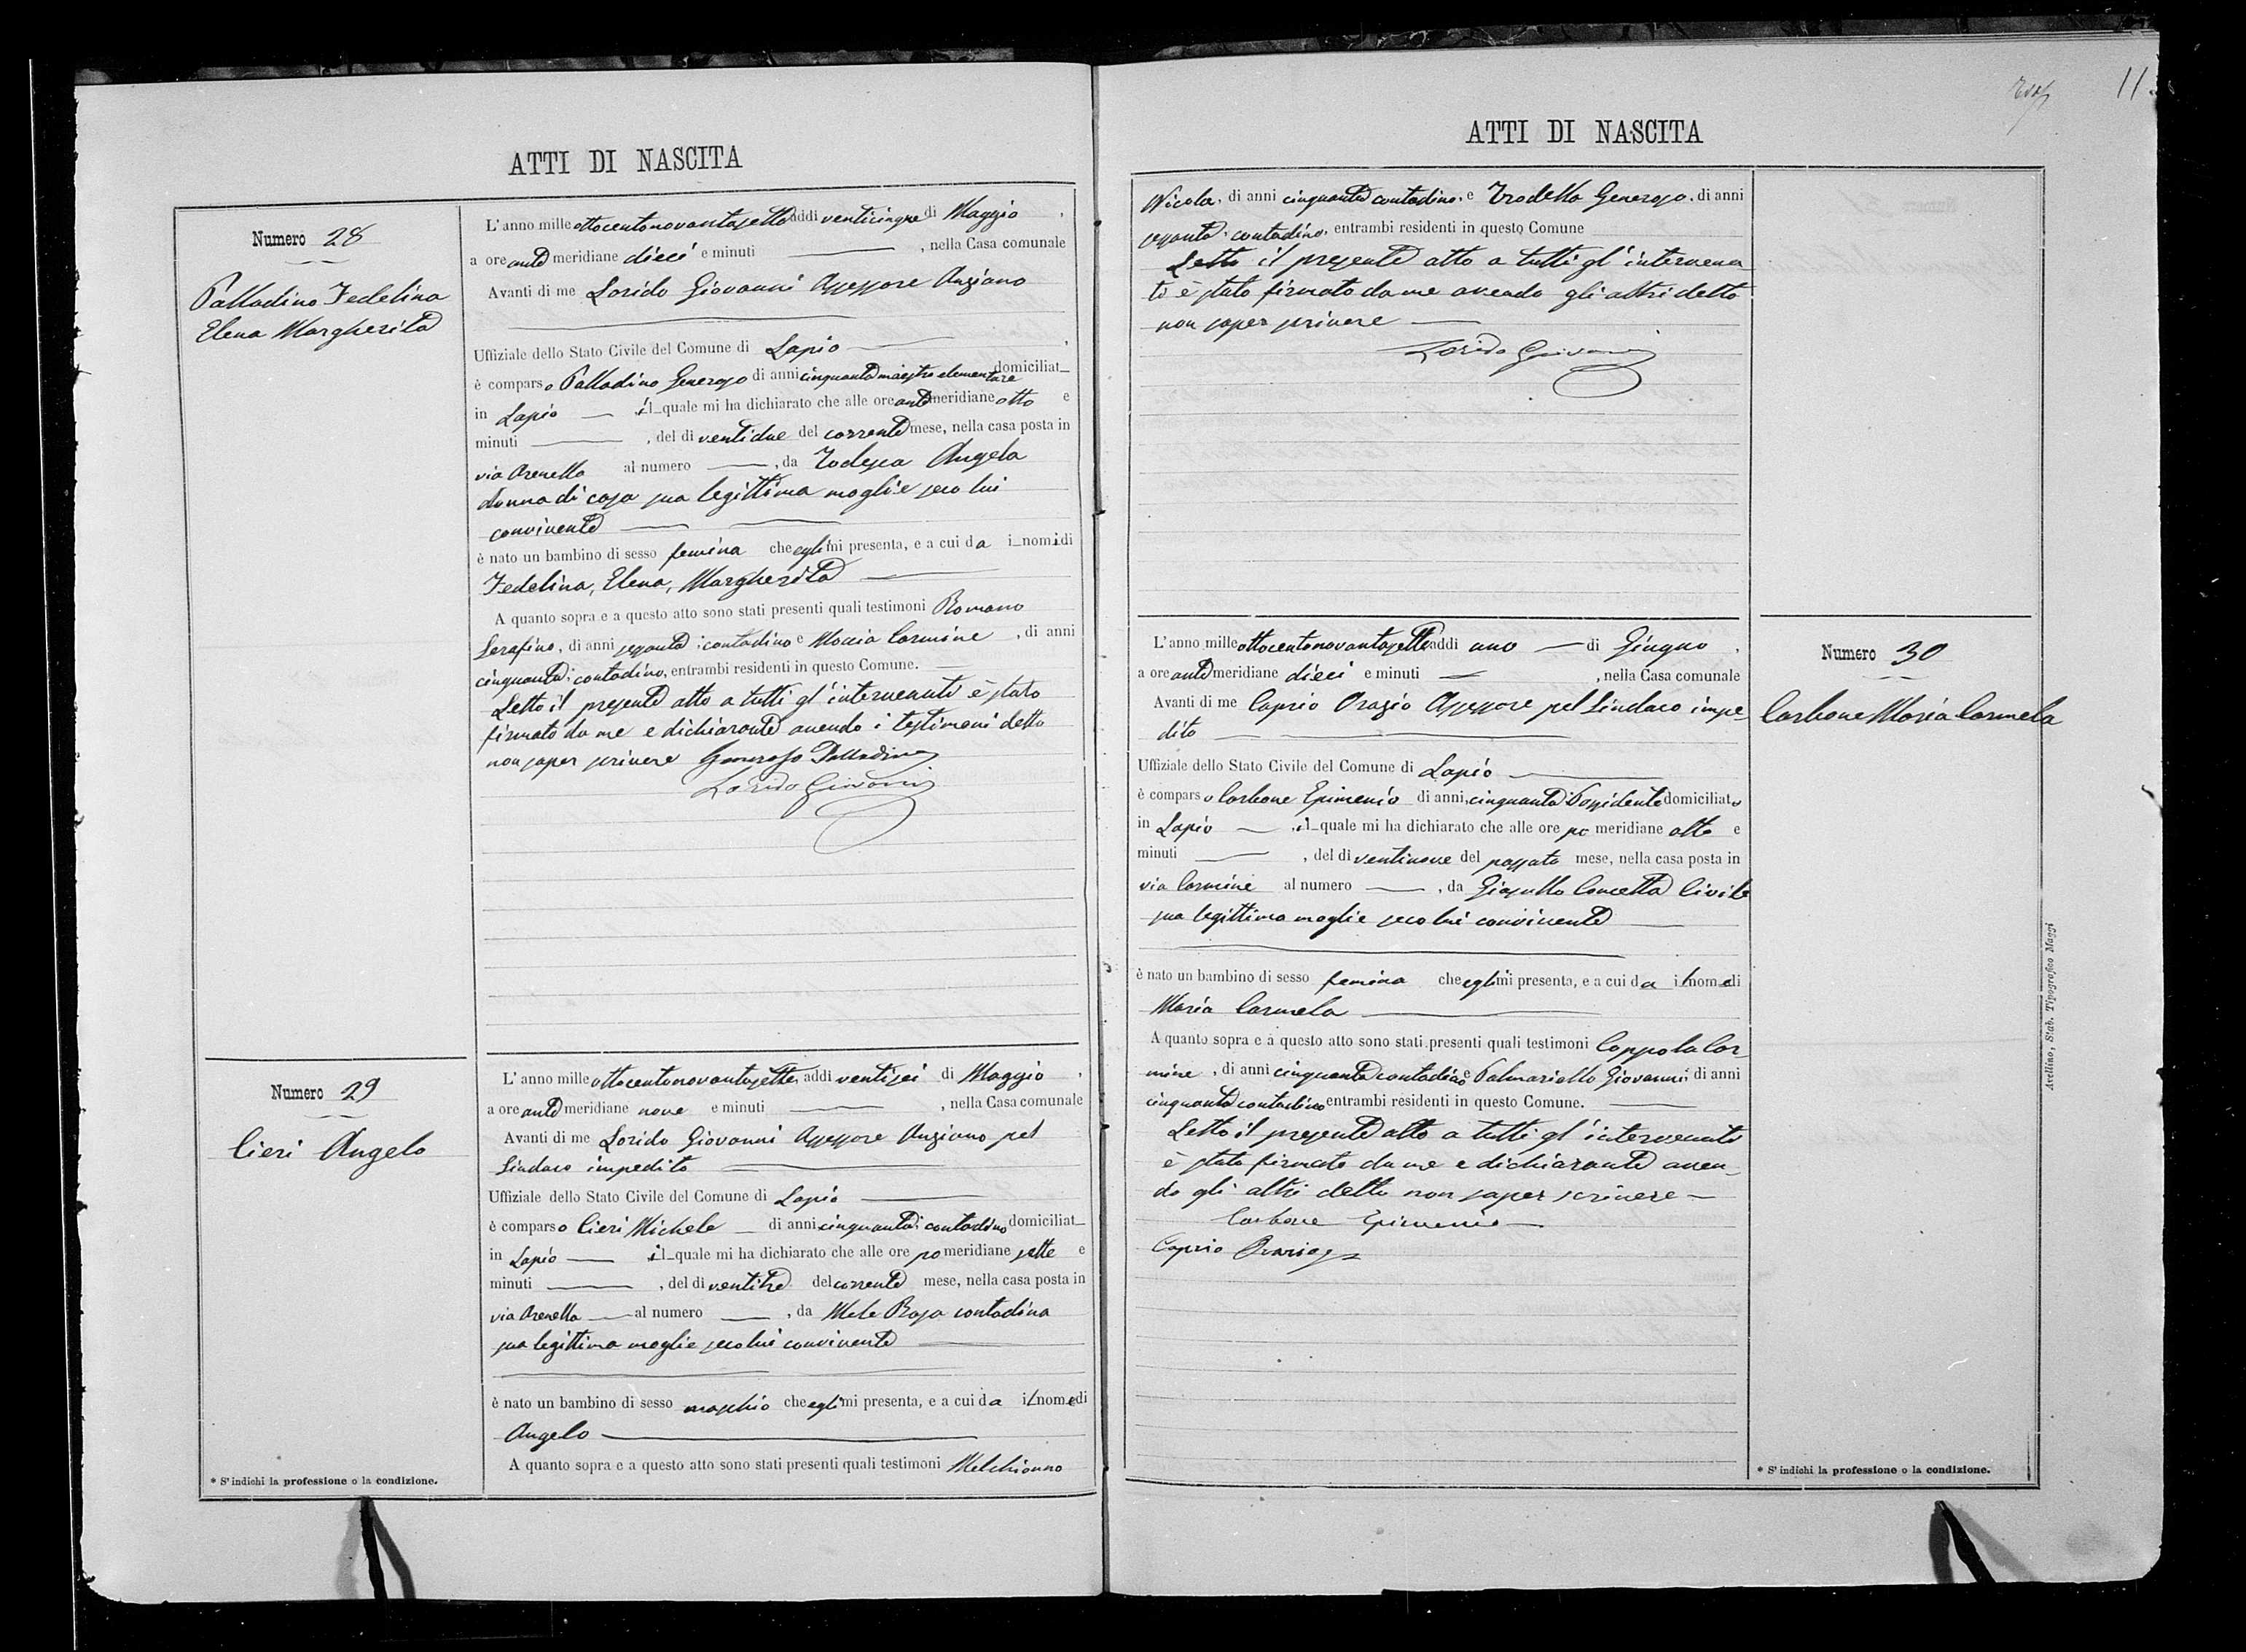 ATTI DI NASCITA
Numero 28
Palladino Fedelina
Elena Margherita
L'anno mille ottocentonovantasette addi venticinque di Maggio,
a ore ante meridiane dieci e minuti, nella Casa comunale
Avanti di me Lorido Giovanni Assessore Anziano
Uffiziale dello Stato Civile del Comune di Lapio,
è comparso Palladino Generoso di anni cinquanta maestro elementare domiciliat
in Lapio il quale mi ha dichiarato che alle ore ante meridiane otto e
minuti, del di ventidue del corrente mese, nella casa posta in
via Arenella al numero, da Todesca Angela
donna di casa sua legittima moglie seco lui
convivente
è nato un bambino di sesso femina che egli mi presenta, e a cui da i nomi di
Fedelina, Elena, Margherita
A quanto sopra e a questo atto sono stati presenti quali testimoni Romano
Serafino, di anni sessanta, contadino e Moccia Carmine, di anni
cinquanta, contadino, entrambi residenti in questo Comune.
Letto il presente atto a tutti gl'intervenuti è stato
firmato da me e dichiarante avendo i testimoni detto
non saper scrivere Generoso Palladino
Lorido Giovanni
Numero 29
Cieri Angelo
L'anno mille ottocentonovantasette, addi ventisei di Maggio,
a ore ante meridiane nove e minuti, nella Casa comunale
Avanti di me Lorido Giovanni Assessore Anziano pel
Sindaco impedito
Uffiziale dello Stato Civile del Comune di Lapio
è comparso Cieri Michele di anni cinquanta, contadino domiciliat
in Lapio il quale mi ha dichiarato che alle ore po meridiane sette e
minuti, del di ventitre del corrente mese, nella casa posta in
via Arenella al numero, da Mele Rosa contadina
sua legittima moglie seco lui convivente
è nato un bambino di sesso maschio che egli mi presenta, e a cui da il nome di
Angelo
A quanto sopra e a questo atto sono stati presenti quali testimoni Melchionno
* S'indichi la professione o la condizione.
11.
ATTI DI NASCITA
Nicola, di anni cinquanta contadino, e Trodella Generoso, di anni
sessanta, contadino, entrambi residenti in questo Comune
Letto il presente atto a tutti gl'intervenu
ti è stato firmato da me avendo gli altri detto
non saper scrivere
Lorido Giovanni
Numero 30
Carbone Maria Carmela
L'anno mille ottocentonovantasette addi uno di Giugno,
a ore ante meridiane dieci e minuti, nella Casa comunale
Avanti di me Caprio Orazio Assessore pel Sindaco impe
dito
Uffiziale dello Stato Civile del Comune di Lapio
è comparso Carbone Epimenio di anni, cinquanta Possidente domiciliato
in Lapio, il quale mi ha dichiarato che alle ore po meridiane otto e
minuti, del di ventinove del passato mese, nella casa posta in
via Carmine al numero, da Concetta Civile
sua legittima moglie seco lui convivente
è nato un bambino di sesso femina che egli mi presenta, e a cui da il nome di
Maria Carmela
A quanto sopra e a questo atto sono stati presenti quali testimoni Coppola Car
mine, di anni cinquanta contadino e Palmariello Giovanni, di anni
cinquanta contadino entrambi residenti in questo Comune.
Letto il presente atto a tutti gl'intervenuti
è stato firmato da me e dichiarante aven
do gli altri detto non saper scrivere
Carbone Epimenio
Caprio Orazio
* S'indichi la professione o la condizione.
Avellino, Stab. Tipografico Maggi